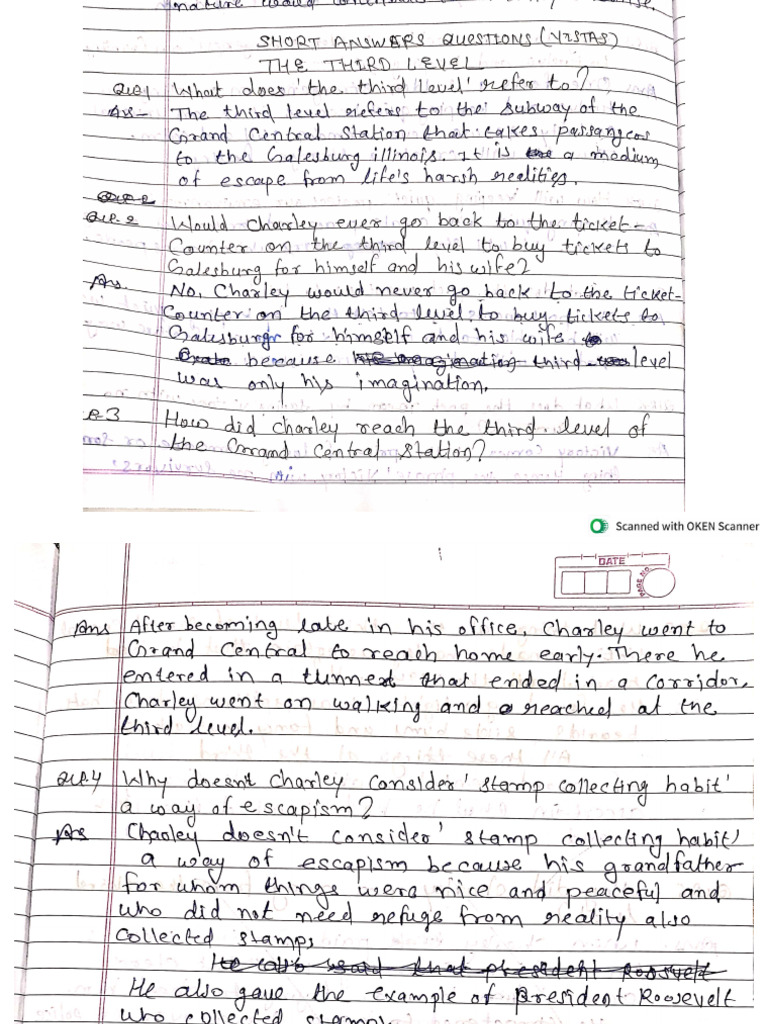 nature would
SHORT ANSWERS QUESTIONS (VISTAS)
THE THIRD LEVEL
Que1 What does 'the third level' refer to?
Ans- The third level refers to the subway of the
Grand Central Station that takes passangers
to the Galesburg illinois. It is a medium
of escape from life's harsh realities.
Que 2
Que. 2 Would Charley ever go back to the ticket-
Counter on the third level to buy tickets to
Galesburg for himself and his wife?
Ans. No, Charley would never go back to the ticket-
Counter on the third level to buy tickets to
Galesburg for himself and his wife
because third level
was only his imagination.
Q3 How did Charley reach the third level of
the Grand Central Station?
Scanned with OKEN Scanner
DATE
PAGE NO.
Ans After becoming late in his office, Charley went to
Grand Central to reach home early. There he
entered in a tunnel that ended in a corridor.
Charley went on walking and reached at the
third level.
Que.4 Why doesn't Charley Consider 'stamp collecting habit'
a way of escapism?
Ans Charley doesn't Consider 'stamp collecting habit'
a way of escapism because his grandfather
for whom things were nice and peaceful and
who did not need refuge from reality also
collected stamps
He also said that president Roosvelt
He also gave the example of President Roosevelt
who collected stamps.